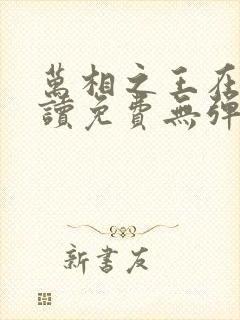 萬相之王在
讀免費無彈
新書友